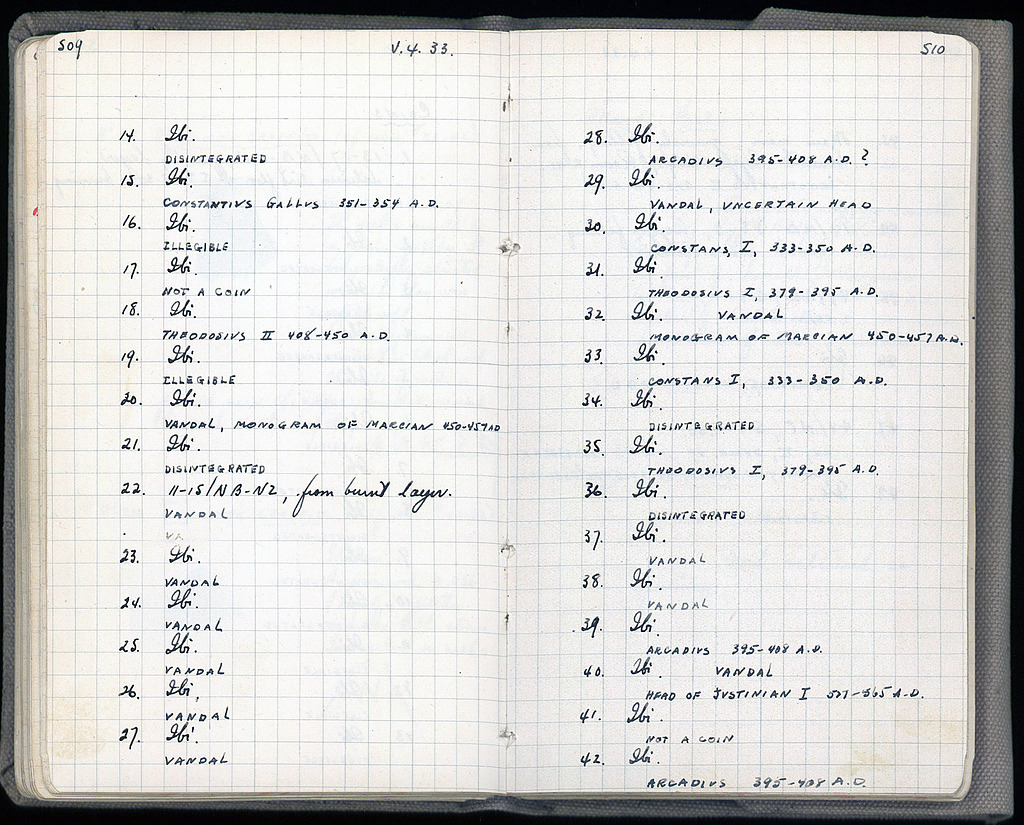 509
V.4.33.
14. Ibi.
DISINTEGRATED
15. Ibi.
CONSTANTIVS GALLVS 351-354 A.D.
16. Ibi.
ILLEGIBLE
17. Ibi.
NOT A COIN
18. Ibi.
THEODOSIVS II 408-450 A.D.
19. Ibi.
ILLEGIBLE
20. Ibi.
VANDAL, MONOGRAM OF MARCIAN 450-457 AD
21. Ibi.
DISINTEGRATED
22. 11-15/NB-N2, from burnt layer.
VANDAL
VA
23. Ibi.
VANDAL
24. Ibi.
VANDAL
25. Ibi.
VANDAL
26. Ibi.
VANDAL
27. Ibi.
VANDAL
510
28. Ibi.
ARCADIVS 395-408 A.D. ?
29. Ibi.
VANDAL, VNCERTAIN HEAD
30. Ibi.
CONSTANS, I, 333-350 A.D.
31. Ibi.
THEODOSIVS I, 379-395 A.D.
32. Ibi. VANDAL
MONOGRAM OF MARCIAN 450-457 A.D.
33. Ibi.
CONSTANS I, 333-350 A.D.
34. Ibi.
DISINTEGRATED
35. Ibi.
THEODOSIVS I, 379-395 A.D.
36. Ibi.
DISINTEGRATED
37. Ibi.
VANDAL
38. Ibi.
VANDAL
39. Ibi.
ARCADIVS 395-408 A.D.
40. Ibi. VANDAL
HEAD OF JVSTINIAN I 527-565 A.D.
41. Ibi.
NOT A COIN
42. Ibi.
ARCADIVS 395-408 A.D.